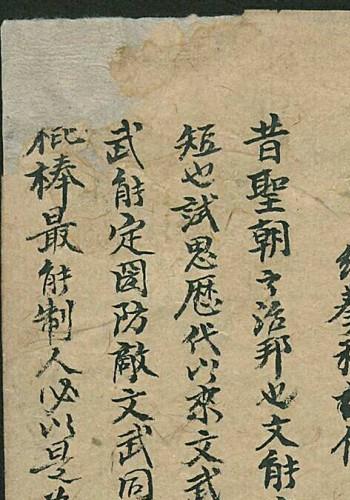 昔聖朝之治邦也文能
短也試思歷代以來文武
武能定國防敵文武同
棍棒最能制人必以是